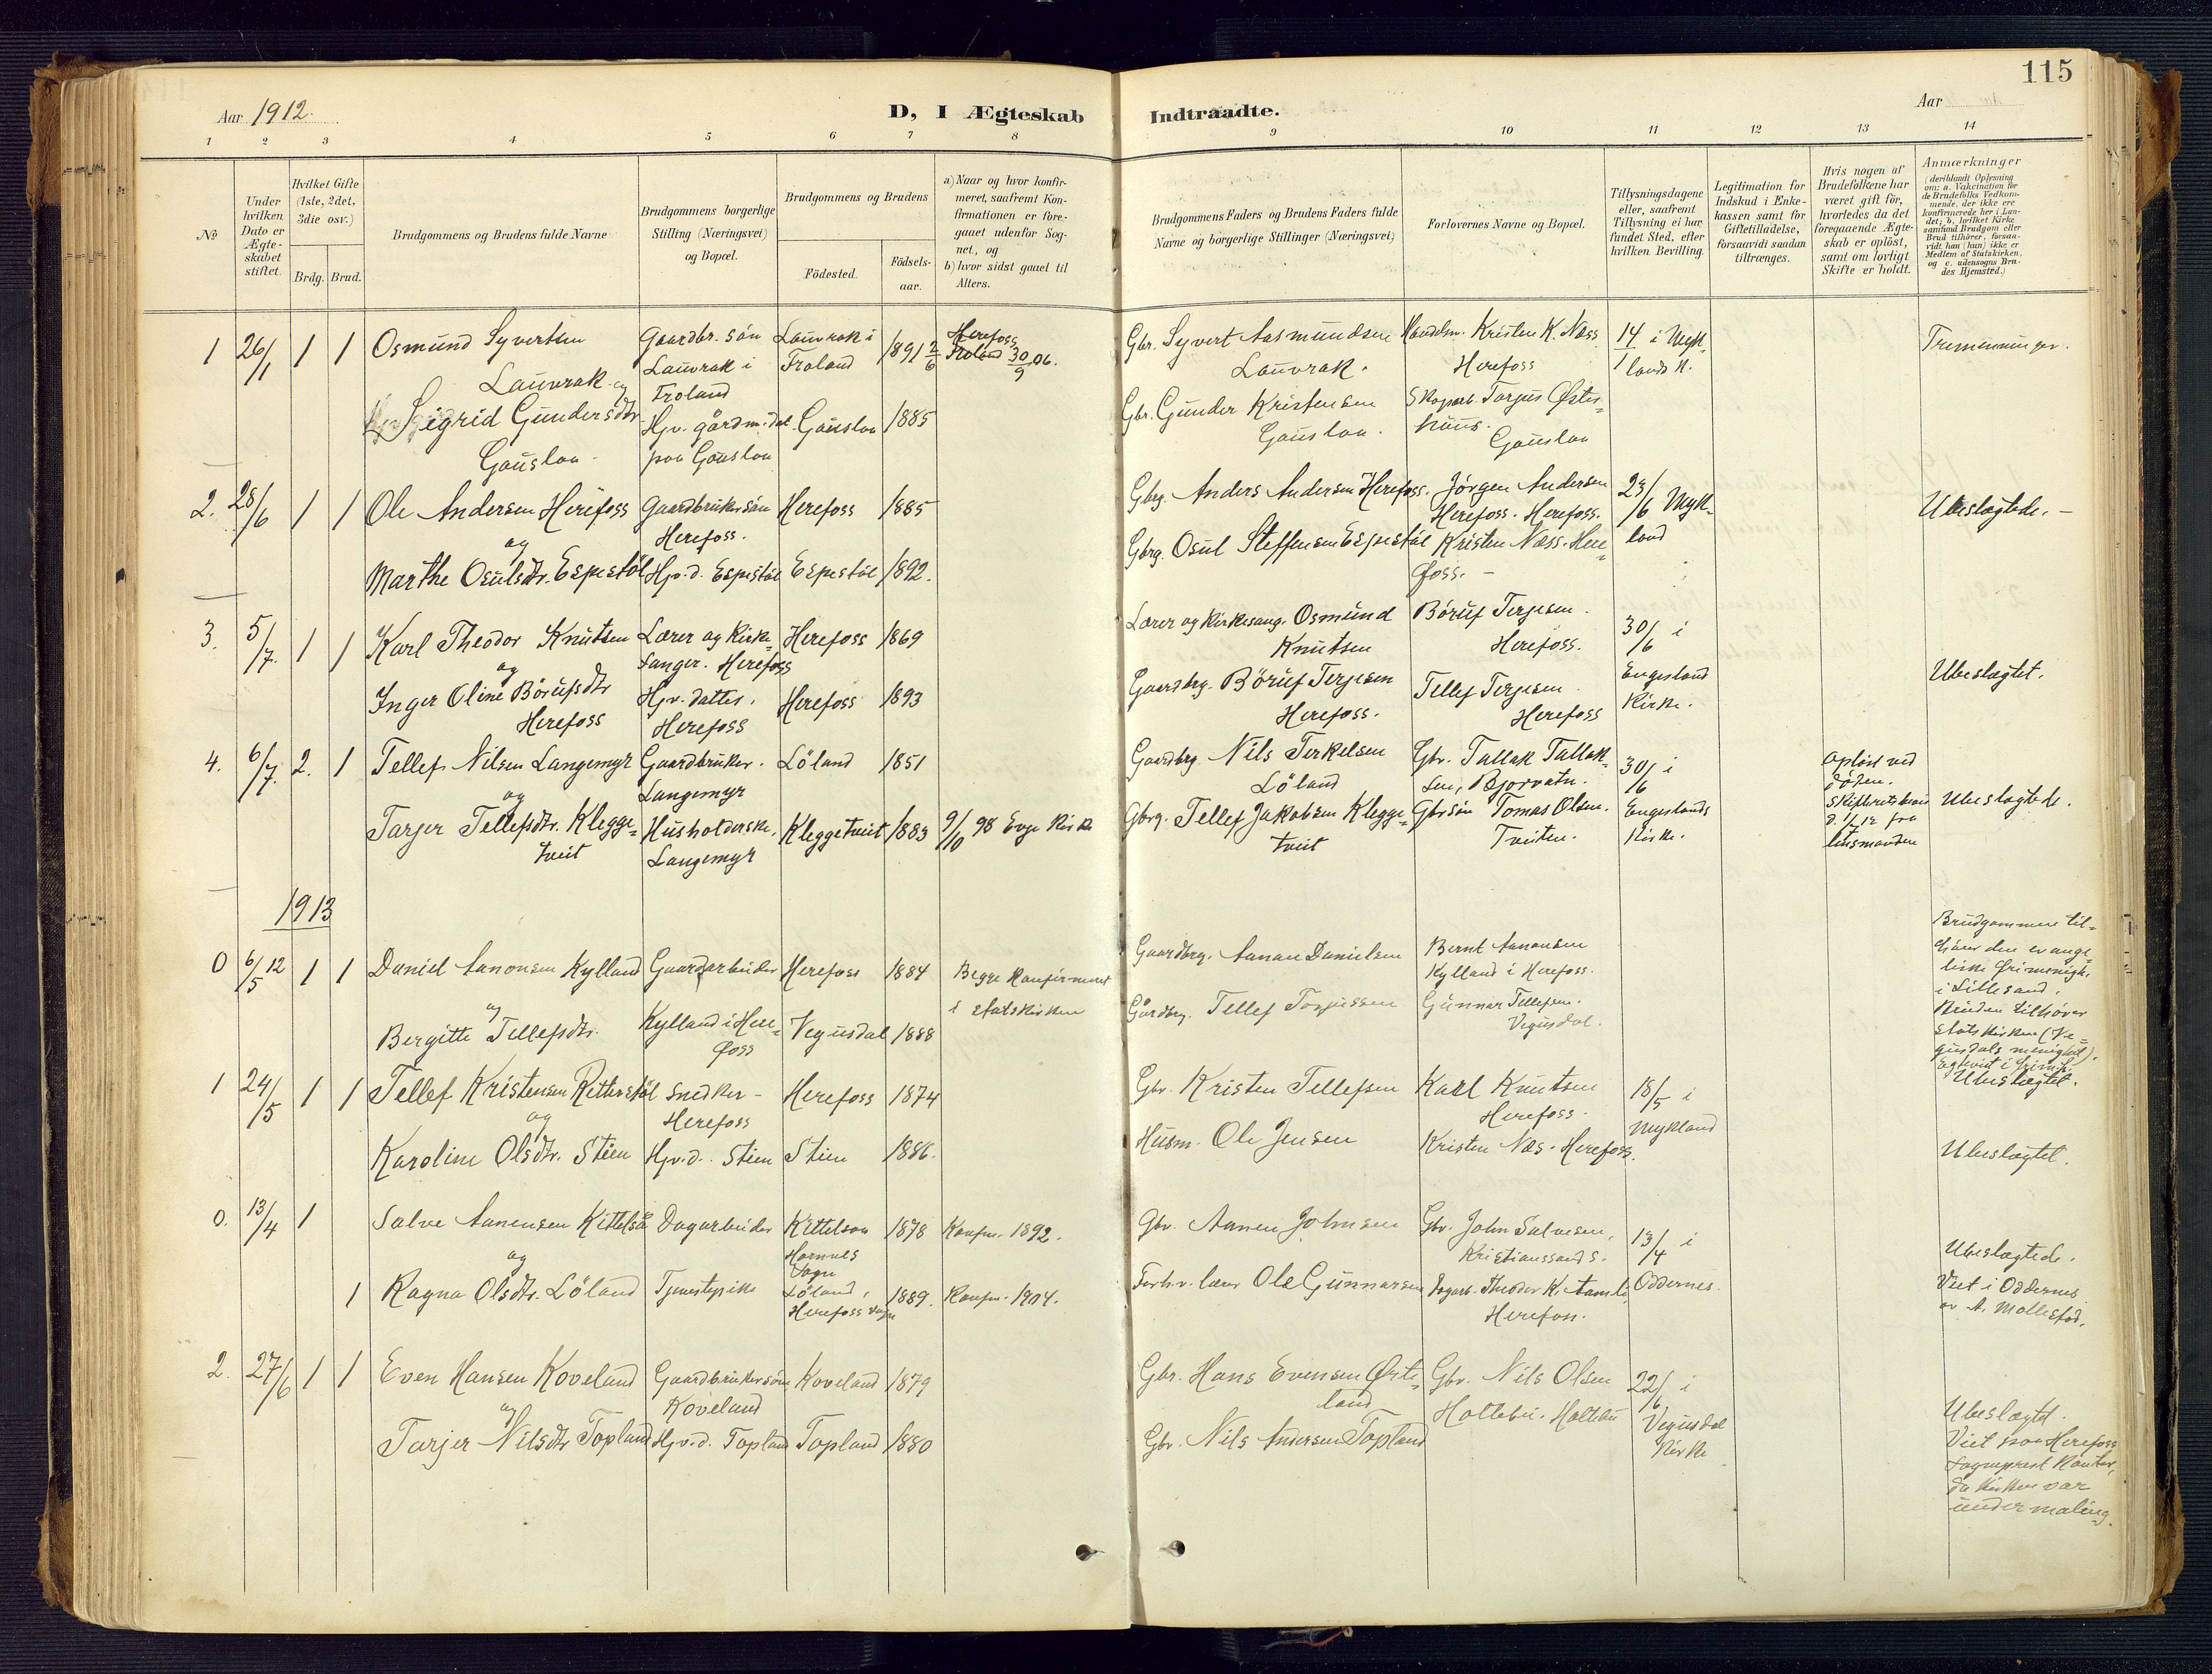 115
Aar 1912.
D, I Ægteskab Indtraadte.
Aar
1 2 3 4 5 6 7 8 9 10 11 12 13 14
No
Under hvilken Dato er Ægteskabet stiftet.
Hvilket Gifte (1ste, 2det, 3die osv.)
Brdg. Brud.
Brudgommens og Brudens fulde Navne
Brudgommens borgerlige Stilling (Næringsvei) og Bopæl.
Brudgommens og Brudens
Födested.
Födsels-aar.
a) Naar og hvor konfirmeret, saafremt Konfirmationen er foregaaet udenfor Sognet, og
b) hvor sidst gaaet til Alters.
Brudgommens Faders og Brudens Faders fulde Navne og borgerlige Stillinger (Næringsvei)
Forlovernes Navne og Bopæl.
Tillysningsdagene eller, saafremt Tillysning ei har fundet Sted, efter hvilken Bevilling.
Legitimation for Indskud i Enkekassen samt for Giftetilladelse, forsaavidt saadan tiltrænges.
Hvis nogen af Brudefolkene har været gift för, hvorledes da det foregaaende Ægteskab er oplöst, samt om lovligt Skifte er holdt.
Anmærkninger (deriblandt Oplysning om: a. Vakcination for de Brudefolks Vedkommende, der ikke ere konfirmerede her i Landet; b. hvilket Kirkesamfund Brudgom eller Brud tilhörer, forsaavidt han (hun) ikke er Medlem af Statskirken, og c. udensogns Brudes Hjemsted.)
1 26/1 1 1 Osmund Syvertsen Lauvrak og
Gaardbr. sön Lauvrak i Froland
Lauvrak i Froland 1891 2/6
Herefoss Froland 30/9 06.
Gbr. Syvert Aasmundsen Lauvrak.
Handelsm. Kristen K. Næss Herefoss
14/1 i Mykland K.
Tremenninger.
Sigrid Gundersdtr Gauslaa
Hjv. gårdm. dat paa Gauslaa
Gauslaa 1885
Gbr. Gunder Kristensen Gauslaa.
Skoparb. Tarjus Østerhuus. Gauslaa
2. 28/6 1 1 Ole Andersen Herefoss
og
Gaardbrukersön Herefoss.
Herefoss 1885
Gbrg. Anders Andersen Herefoss.
Jörgen Andersen Herefoss. Herefoss.
23/6 Mykland
Ubeslægtede.
Marthe Osulsdtr. Espestöl
Hjv. d. Espestöl Espestöl 1892.
Gbrg. Osul Steffensen Espestöl
Kristen Næss. Herefoss.
3. 5/7. 1 1 Karl Theodor Knutsen
og
Lærer og Kirkesanger. Herefoss
Herefoss 1869
Lærer og Kirkesang. Osmund Knutsen
Börüf Terjesen. Herefoss.
30/6 i Engesland Kirke.
Ubeslægtet.
Inger Oline Börüfsdtr Herefoss
Hjv. datter. Herefoss
Herefoss 1893
Gaardbrg. Börüf Terjesen Herefoss.
Tellef Terjesen. Herefoss
4. 6/7. 2. 1 Tellef Nilsen Langemyr
og
Gaardbruker. Langemyr
Löland 1851
Gaardbrg. Nils Terkelsen Löland
Gbr. Tallak Tallaksen, Bjorvatn.
30/6 i Engeslands Kirke.
oplöst ved döden.
Ubeslægtede.
Tarjer Tellefsdtr. Kleggetveit
Husholderske. Langemyr
Kleggetveit 1883
9/10 98 Evje Kirke
Gbrg. Tellef Jakobsen Kleggetveit
Gbrsön Tomas Olsen. Tveiten.
1913
0 6/5 12 1 1 Daniel Aanonsen Kylland
og
Gaardarbeider Kylland i Herefoss
Herefoss 1884
Begge Konfirmeret i statskirken
Gaardbrg. Aanon Danielsen
Bernt Aanonsen Kylland i Herefoss.
Brudgommen tilhører den evangeliske frimenigh. i Lillesand. Bruden tilhører statskirken (Vegusdals menighet).
Bergitte Tellefsdtr.
Vegusdal 1888
Gårdbrg. Tellef Torjussen
Gunnar Tellefsen. Vegusdal.
Ubeslægtet.
1 24/5 1 1 Tellef Kristensen Retterstöl
og
Snedker Herefoss
Herefoss 1874
Gbr. Kristen Tellefsen
Karl Knutsen Herefoss.
18/5 i Mykland
Karoline Olsdtr. Stien
Hjv. d. Stien Stien 1886.
Husm. Ole Jensen
Kristen Næs. Herefoss.
Ubeslægtet.
0. 13/4 1 Salve Aanensen Kittelså
og
Dagarbeider
Kittelsaa Hornnes Sogn
1878 Konfm. 1892.
Gbr. Aanen Johnsen
Gbr. John Salvesen, Kristianssand S.
13/4 i Oddernes.
Ubeslægtede.
1 Ragna Olsdtr. Löland
Tjenestepike
Löland, Herefoss sogn
1889. Konfm. 1904.
Forh.v. lærer Ole Gunnarsen
Dagarb. Theodor K. Aamli. Herefoss.
Viet i Oddernes av A. Mollestad.
2. 27/6 1 1 Even Hansen Koveland
og
Gaardbrukersön Koveland
Koveland 1879
Gbr. Hans Evensen
Gbr. Nils Olsen Holtebu. Holtebu
22/6 i Vegusdal Kirke
Tarjer Nilsdtr Topland
Hjv. d. Topland Topland 1880
Gbr. Nils Andersen Topland
Ubeslægtet.
Viet paa Herefoss
da kirken var
under maling.